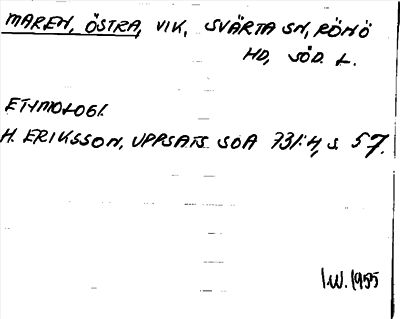 MAREN, ÖSTRA, VIK, SVÄRTA SN, RÖNÖ
HD, SÖD. L.
ETYMOLOGI.
H. ERIKSSON, UPPSATS SOA 731:4, S. 57.
I.W. 1955